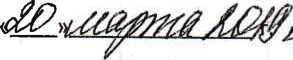 «20» марта 2019